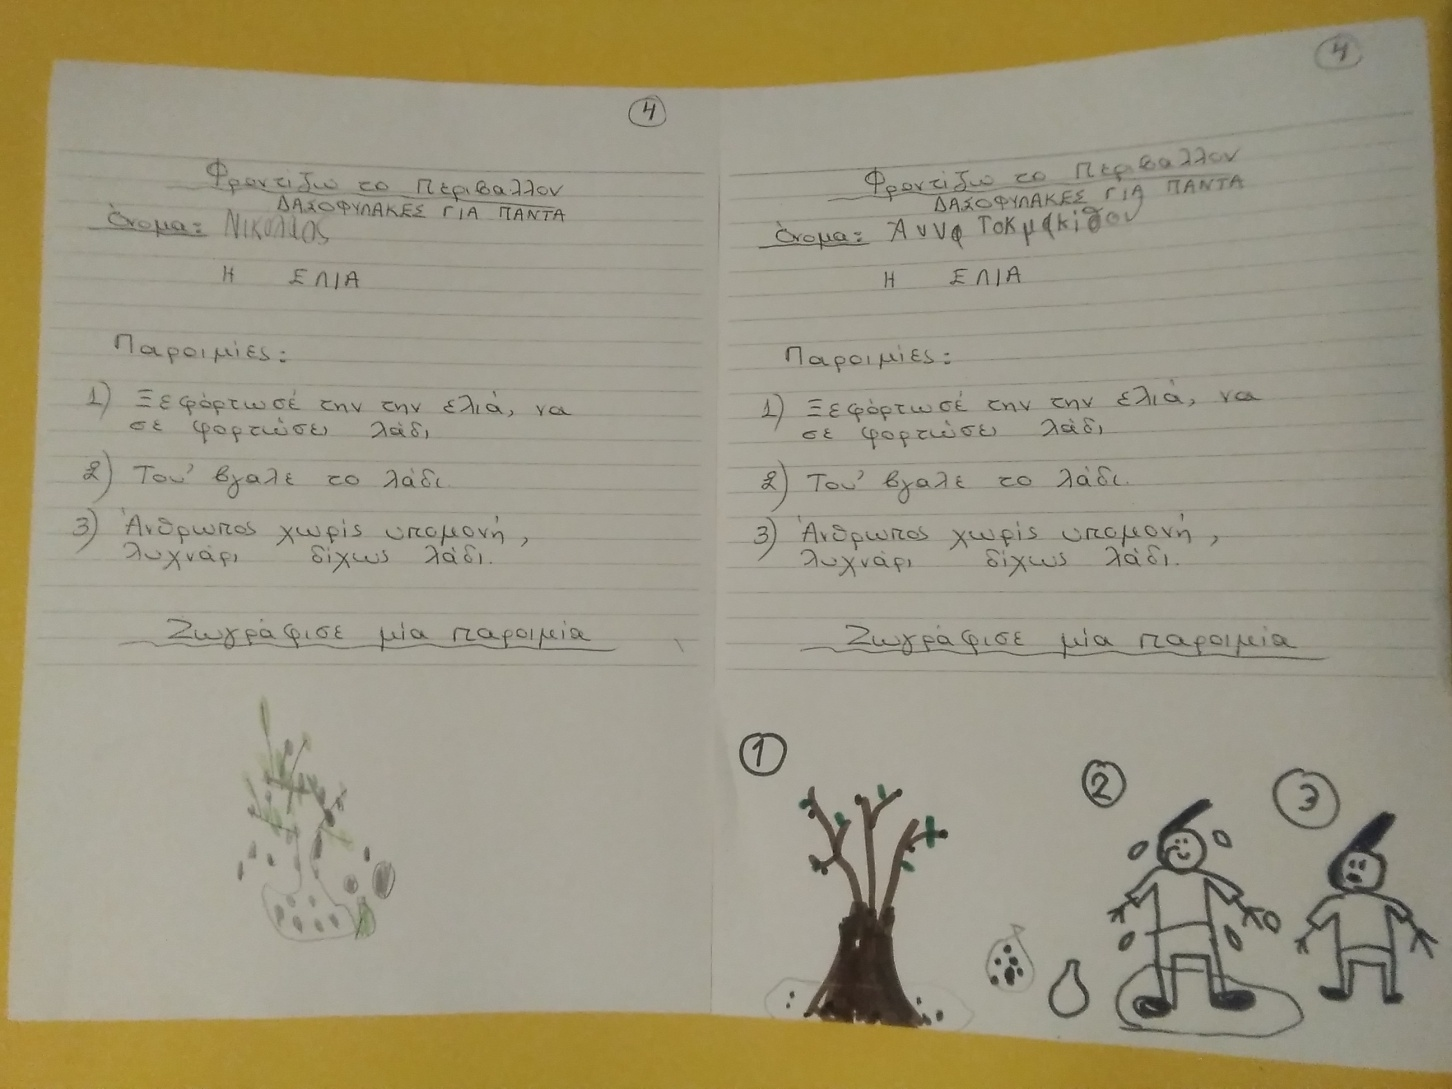 4
Φροντίζω το Περιβαλλον
ΔΑΣΟΦΥΛΑΚΕΣ ΓΙΑ ΠΑΝΤΑ
Όνομα: Νικόλας
Η ΕΛΙΑ
Παροιμίες:
1) Ξεφόρτωσέ την την ελιά, να
σε φορτώσει λάδι
2) Του' βγαλε το λάδι.
3) Άνθρωπος χωρίς υπομονή,
λυχνάρι δίχως λάδι.
Ζωγράφισε μία παροιμία
4
Φροντίζω το Περιβαλλον
ΔΑΣΟΦΥΛΑΚΕΣ ΓΙΑ ΠΑΝΤΑ
Όνομα: Άννα
Η ΕΛΙΑ
Παροιμίες:
1) Ξεφόρτωσέ την την ελιά, να
σε φορτώσει λάδι
2) Του' βγαλε το λάδι.
3) Άνθρωπος χωρίς υπομονή,
λυχνάρι δίχως λάδι.
Ζωγράφισε μία παροιμία
1
2
3